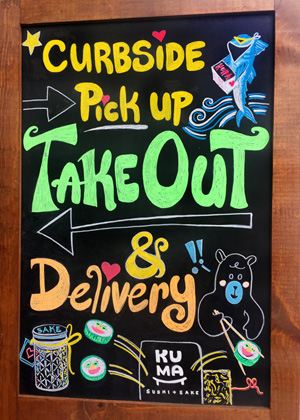 CURBSIDE
Pick up
TAKE OUT
&
Delivery!!
SAKE
KU
MA
SUSHI + SAKE